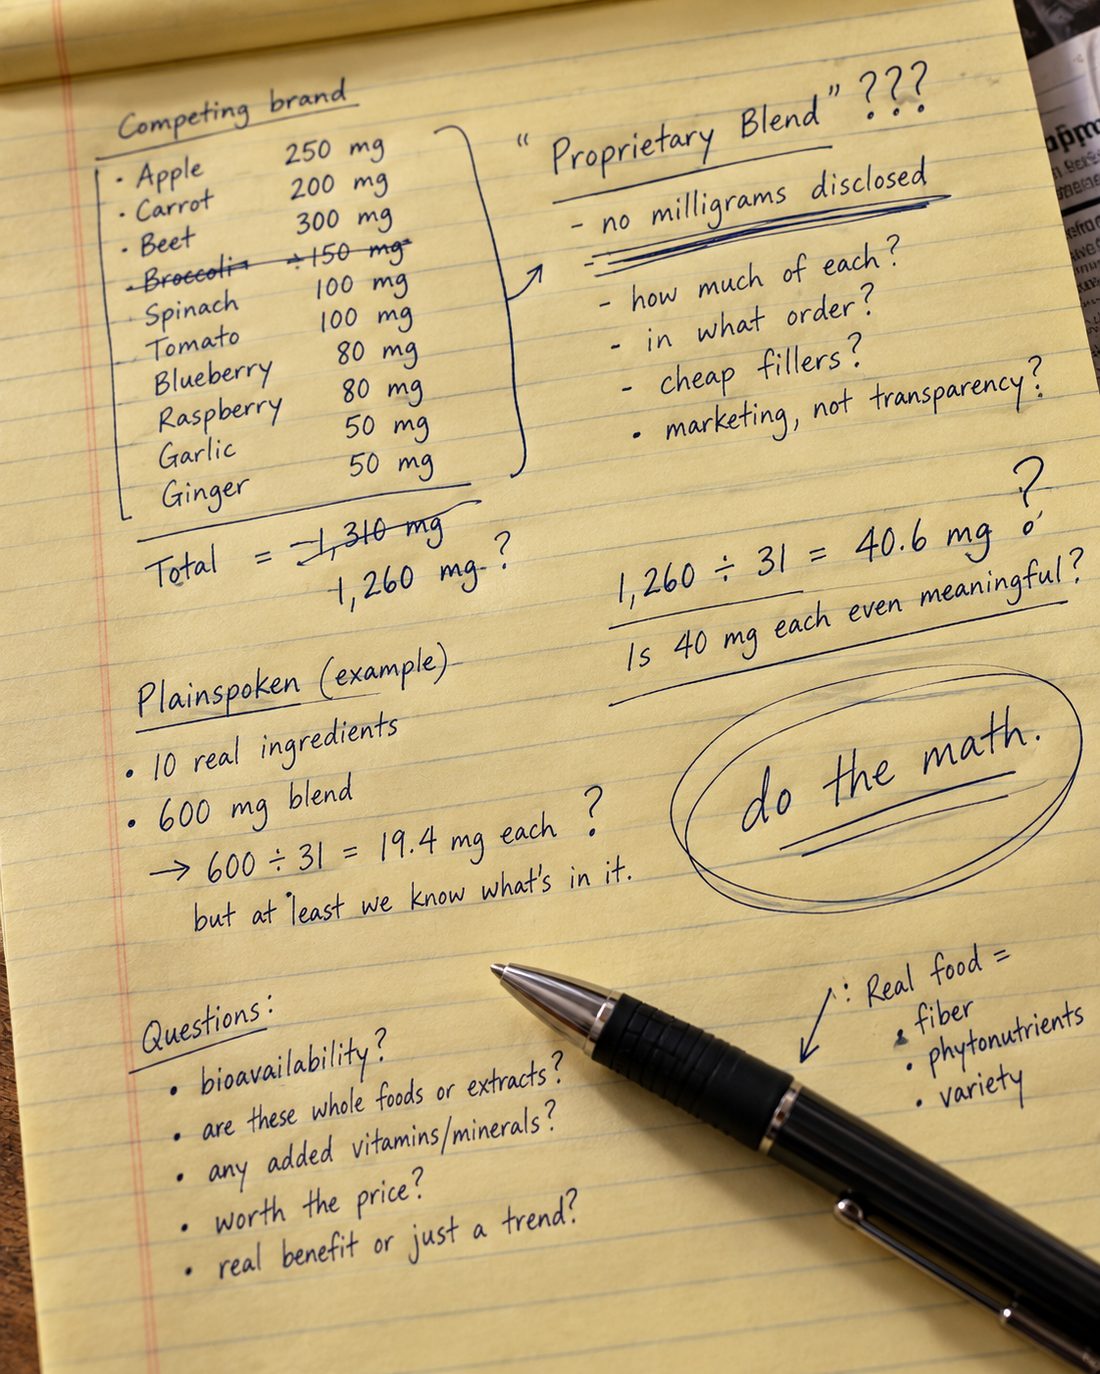 Competing brand
• Apple 250 mg
• Carrot 200 mg
• Beet 300 mg
• Broccoli 150 mg
Spinach 100 mg
Tomato 100 mg
Blueberry 80 mg
Raspberry 80 mg
Garlic 50 mg
Ginger 50 mg
Total = 1,310 mg
1,260 mg ?
"Proprietary Blend" ???
- no milligrams disclosed
- how much of each?
- in what order?
- cheap fillers?
• marketing, not transparency?
1,260 ÷ 31 = 40.6 mg ?
Is 40 mg each even meaningful?
do the math.
Plainspoken (example)
• 10 real ingredients
• 600 mg blend
→ 600 ÷ 31 = 19.4 mg each ?
but at least we know what's in it.
Questions:
• bioavailability?
• are these whole foods or extracts?
• any added vitamins/minerals?
• worth the price?
• real benefit or just a trend?
: Real food =
• fiber
• phytonutrients
• variety